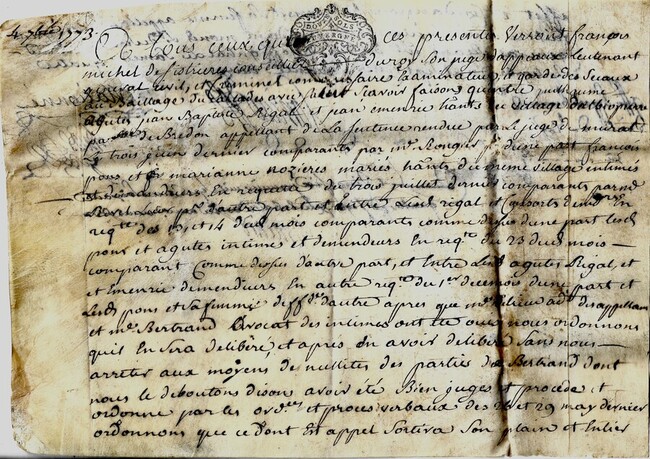 4 7bre 1773
A Tous ceux qui ces presentes verront françois
michel de sistrieres conseiller du roy Son juge dappeaux Lieutenant
general civil, et criminel commissaire Examinateur et garde des Sceaux
au Baillage du Scavoir faisons quentre
aguttes jean Baptiste Rigal et jean emenrie hants du village
par de Bredon appellant de La Sentence rendue par Le juge de murat
Le trois juin dernier comparants par me Ronquier pr dune part françois
pons et marianne rozieres mariés hants du meme village intimés
et demandeurs En requette du trois juillet dernier comparants par me
Bertrand pr dautre part et Entre Lesd rigal et
reqte des 10, et 14 du mois comparants comme dessus dune part Lesd
pons et agutes intimes et demandeurs En reqte du 23 dud mois
comparant Comme dessus dautre part, et Entre Lesd agutes Rigal, et
et Emenrie demandeurs En autre reqte du 1er de ce mois dune part et
Lesd pons et Sa femme deffdrs dautre apres que me adt des appellants
et me Bertrand Avocat des intimes ont été ouis nous ordonnons
quil En Sera deliberé et apres En avoir deliberé Sans nous
arreter aux moyens de nullites des parties de Bertrand dont
nous le deboutons disons avoir été Bien jugés et procédé et
ordonné par les ordces et proces verbaux des 28 et 29 may dernier
ordonnons que ce dont Est appel Sortira Son plain et Entier